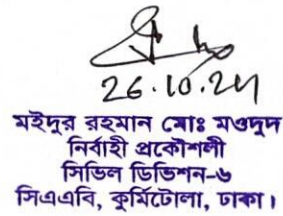 26.10.24
মইদুর রহমান মোঃ মওদুদ
নির্বাহী প্রকৌশলী
সিভিল ডিভিশন-৬
সিএএবি, কুর্মিটোলা, ঢাকা।